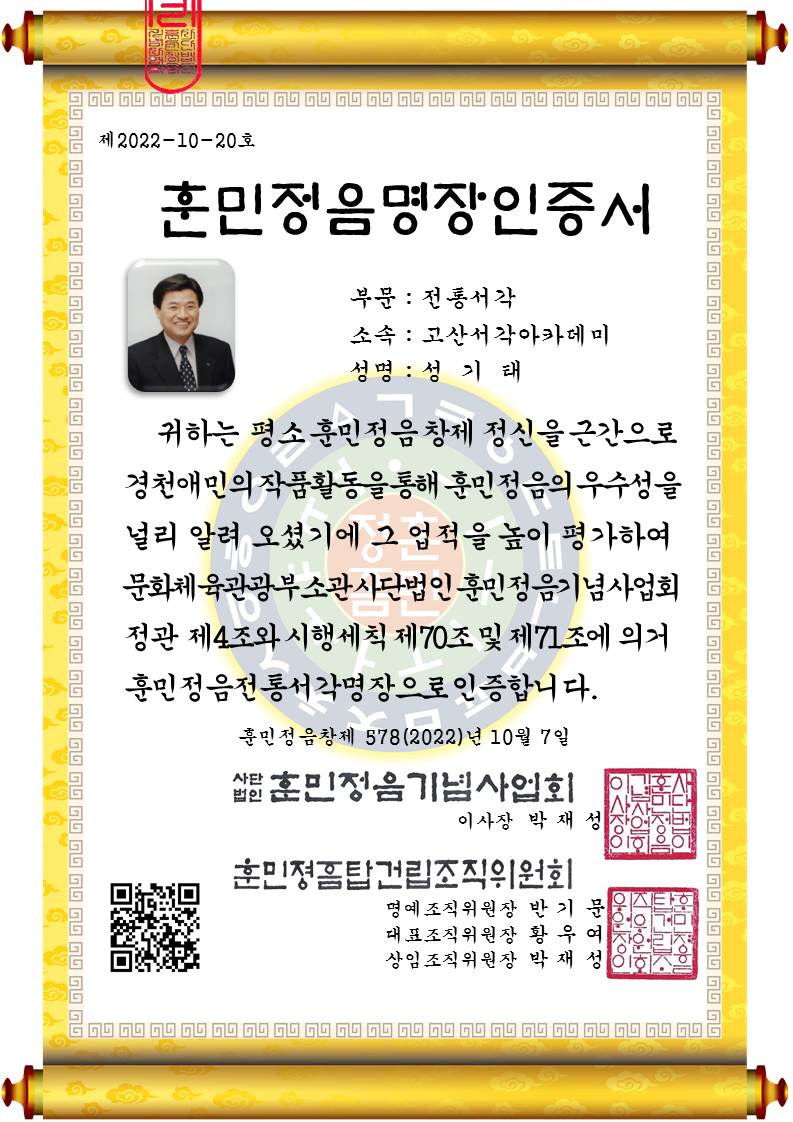 제2022-10-20호
훈민정음명장인증서
부문 : 전통서각
소속 : 고산서각아카데미
성명 : 성 기 태
귀하는 평소 훈민정음 창제 정신을 근간으로
경천애민의 작품활동을 통해 훈민정음의 우수성을
널리 알려 오셨기에 그 업적을 높이 평가하여
문화체육관광부 소관 사단법인 훈민정음기념사업회
정관 제4조와 시행세칙 제70조 및 제71조에 의거
훈민정음전통서각명장으로 인증합니다.
훈민정음창제 578(2022)년 10월 7일
사단법인 훈민정음기념사업회
이사장 박 재 성
훈민정음탑건립조직위원회
명예조직위원장 반 기 문
대표조직위원장 황 우 여
상임조직위원장 박 재 성